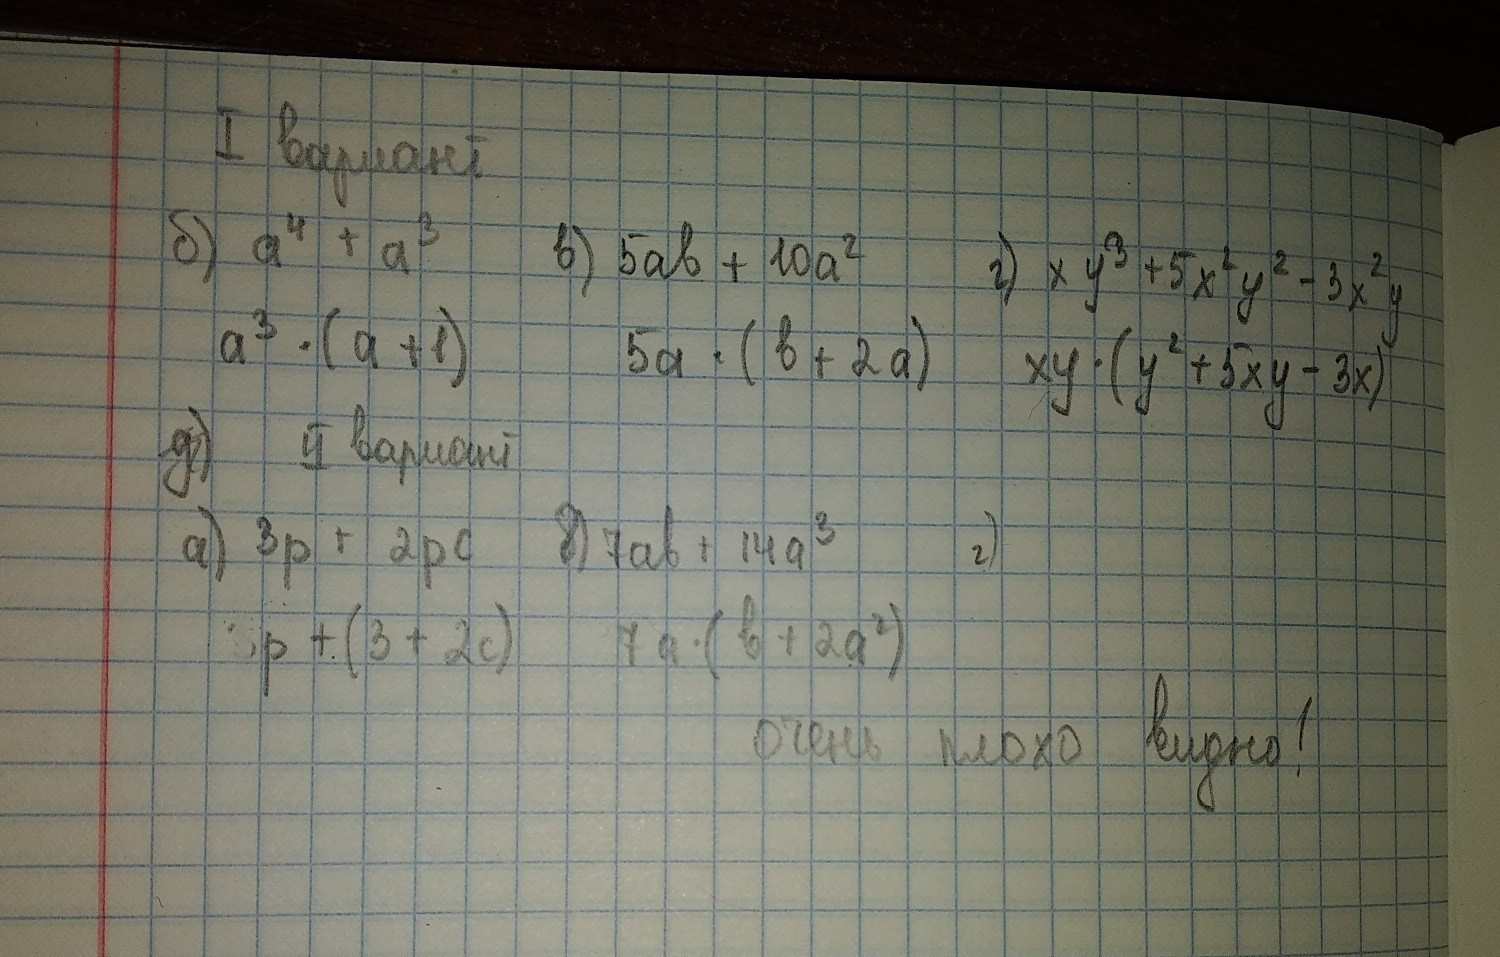 I вариант
б) a⁴ + a³ в) 5ab + 10a² г) xy³ + 5x²y² - 3x²y
a³ · (a + 1) 5a · (b + 2a) xy · (y² + 5xy - 3x)
д) II вариант
а) 3p + 2pc в) 7ab + 14a³ г)
p + (3 + 2c) 7a · (b + 2a²)
очень плохо видно!